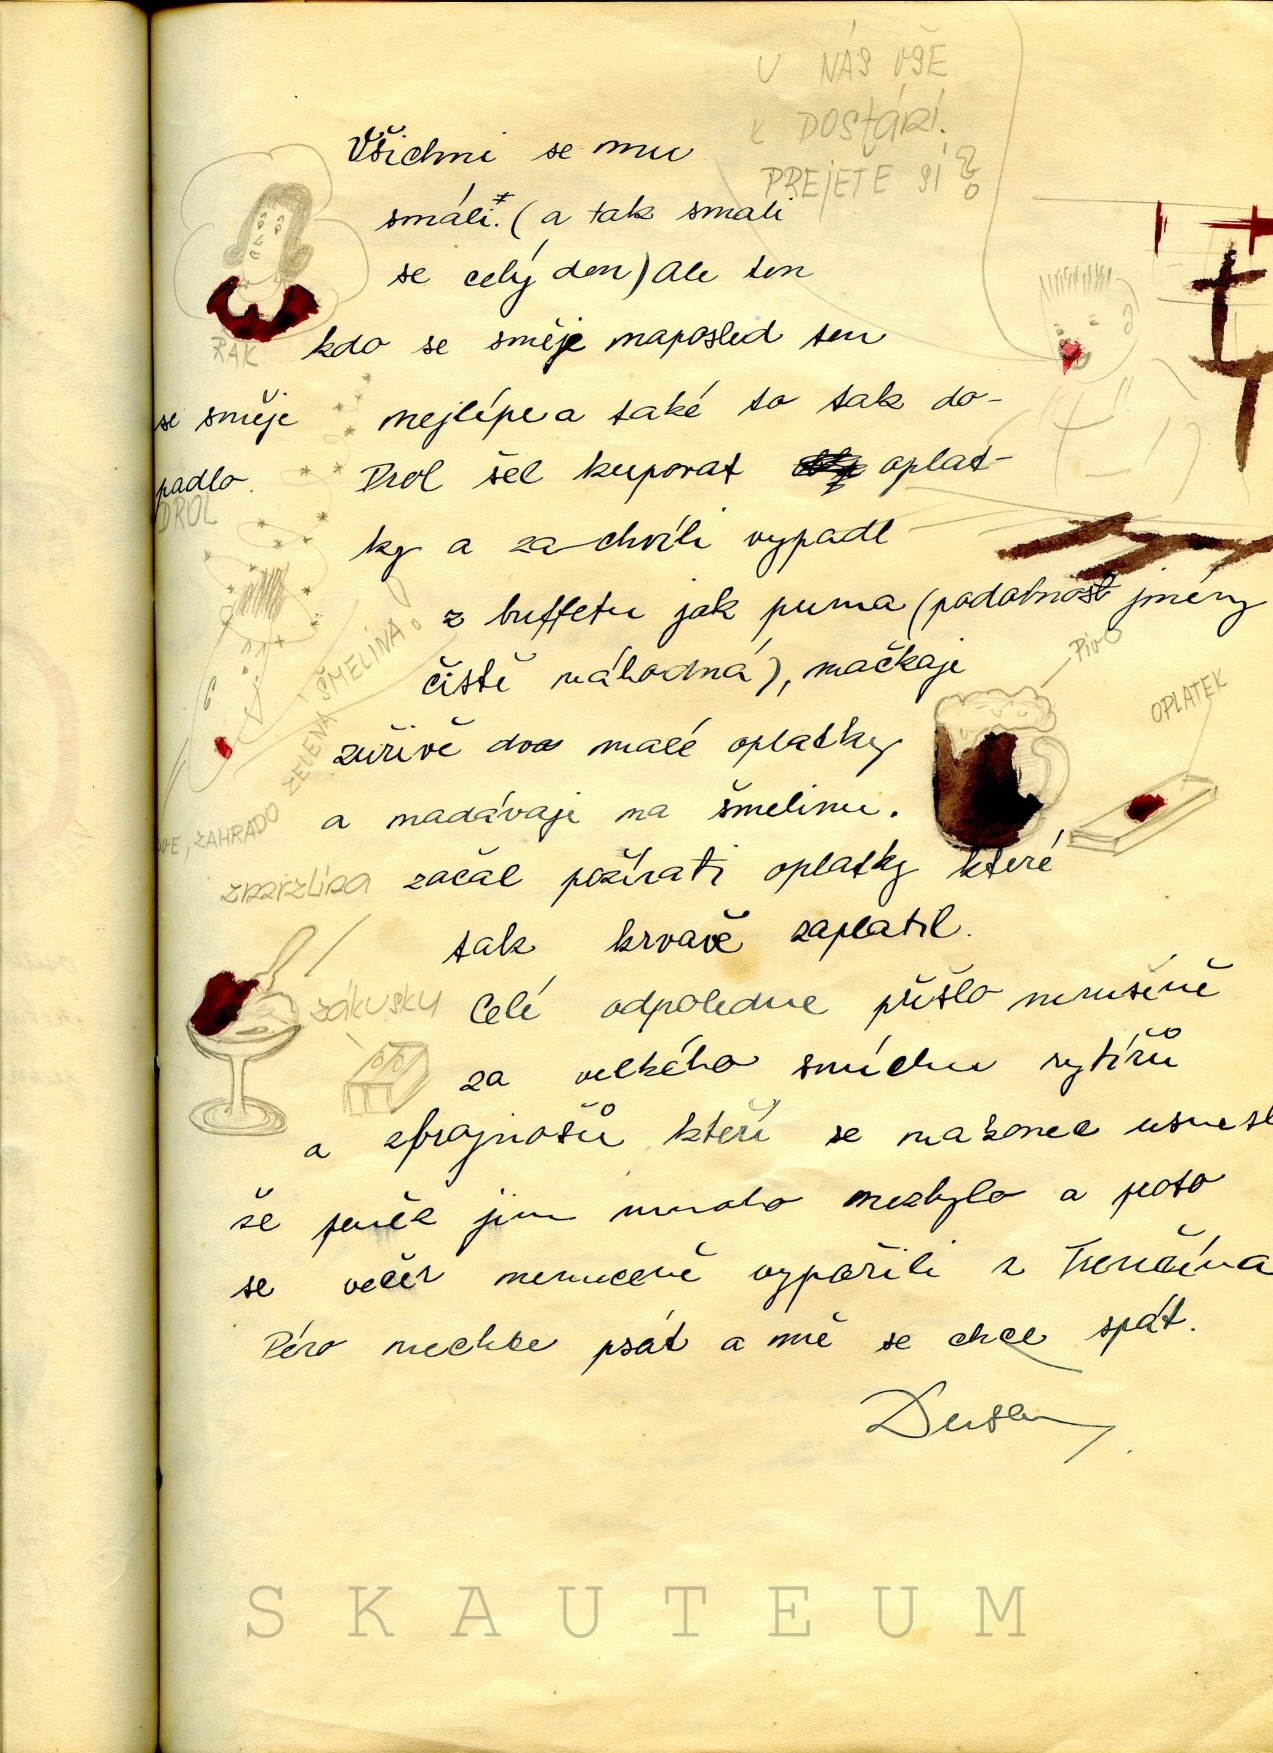 U NÁS VŠE
K DOSTÁNÍ.
PREJETE SI?
Všichni se mu
smáli.* (a tak smáli
se celý den) Ale ten
RAK
kdo se směje naposled ten
se směje nejlépe a také to tak do-
padlo. Drol šel kupovat oplat-
DROL
ky a za chvíli vypadl
z buffetu jak puma (podobnost jmény
čistě náhodná), mačkaje
PIVO
OPLATEK
zuřivě dva malé oplatky
ZELENÁ ŠMELINA!
a nadávaje na šmelinu.
ZAHRADO
zmrzlina
začal požírati oplatky které
tak krvavě zaplatil.
zákusky
Celé odpoledne přešlo nerušeně
za velkého smíchu rytířů
a zbrojnošů kteří se nakonec usnesl
že peněz jim mnoho nezbylo a proto
se večer nenuceně vypařili z Trenčína
Péro nechce psát a mně se chce spát.
Dusan
SKAUTEUM